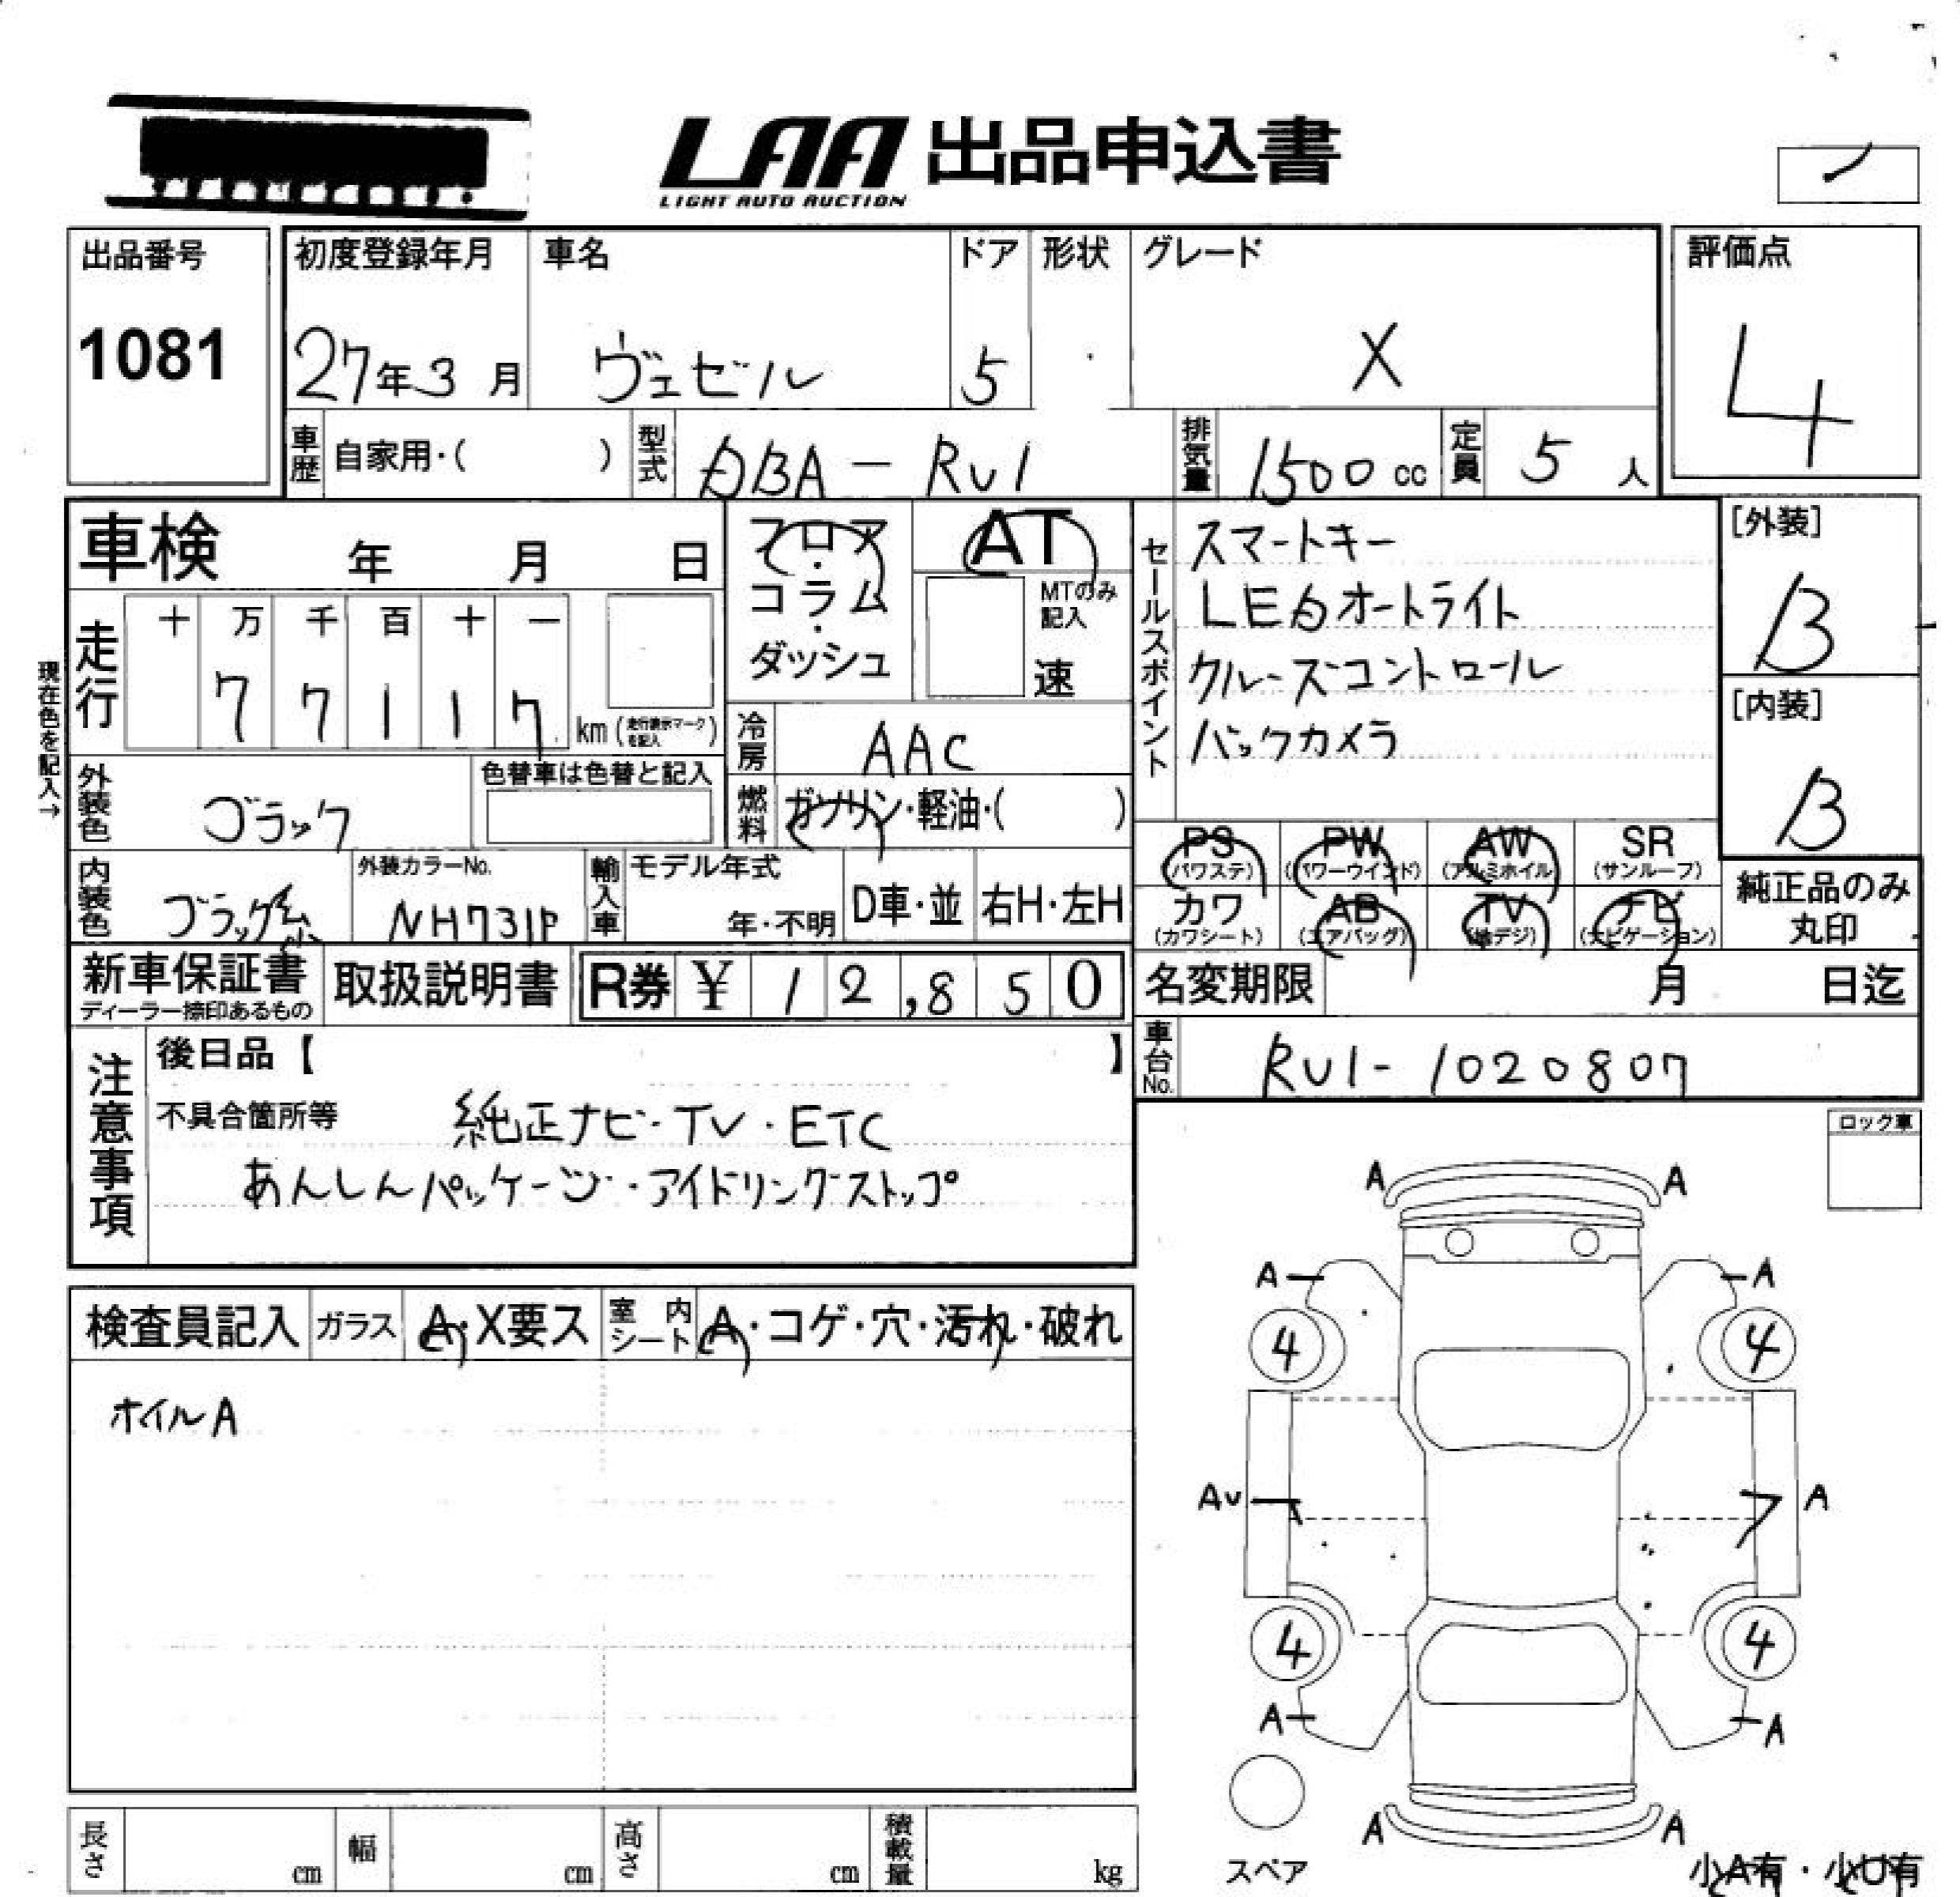 LAA 出品申込書
LIGHT AUTO AUCTION
出品番号 初度登録年月 車名 ドア 形状 グレード 評価点
1081 27年3月 ヴェゼル 5 X 4
車歴 自家用・( ) 型式 DBA-RU1 排気量 1500cc 定員 5人
車検 年 月 日
フロア・コラム・ダッシュ
AT
MTのみ記入
速
セールスポイント
スマートキー
LEDオートライト
クルーズコントロール
バックカメラ
[外装]
B
[内装]
B
現在色を記入→
走行 十 万 千 百 十 一
77117 km (走行表示マークを記入)
冷房 AAC
外装色 ブラック 色替車は色替と記入
燃料 ガソリン・軽油・( )
PS (パワステ) PW (パワーウインド) AW (アルミホイル) SR (サンルーフ)
カワ (カワシート) AB (エアバッグ) TV (地デジ) ナビ (ナビゲーション)
純正品のみ丸印
内装色 ブラック系 外装カラーNo. NH731P 輸入車 モデル年式 年・不明 D車・並 右H・左H
新車保証書 ディーラー捺印あるもの 取扱説明書 R券 ¥ 12,850
名変期限 月 日迄
車台No. RU1-1020807
注意事項
後日品【 】
不具合箇所等 純正ナビ・TV・ETC
あんしんパッケージ・アイドリングストップ
ロック車
検査員記入 ガラス A・X要ス 室内シート A・コゲ・穴・汚れ・破れ
ホイルA
A A
A A
4 4
AU A
4 4
A A
A A
スペア
小A有・小U有
長さ cm 幅 cm 高さ cm 積載量 kg